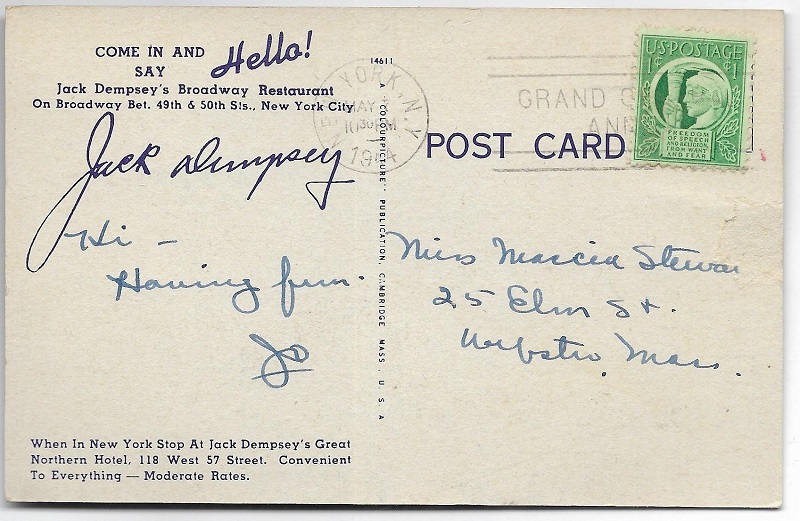 COME IN AND
SAY Hello!
Jack Dempsey's Broadway Restaurant
On Broadway Bet. 49th & 50th Sts., New York City
Jack Dempsey
Hi -
Having fun.
Jo
When In New York Stop At Jack Dempsey's Great
Northern Hotel, 118 West 57 Street. Convenient
To Everything — Moderate Rates.
14611
A "COLOURPICTURE" PUBLICATION, CAMBRIDGE MASS., U.S.A
YORK, N.Y.
MAY
1030PM
GRAND
AND
POST CARD
U.S. POSTAGE
1¢ 1¢
FREEDOM
OF SPEECH
AND RELIGION,
FROM WANT
AND FEAR
Miss Marcia
25 Elm St.
Webster, Mass.